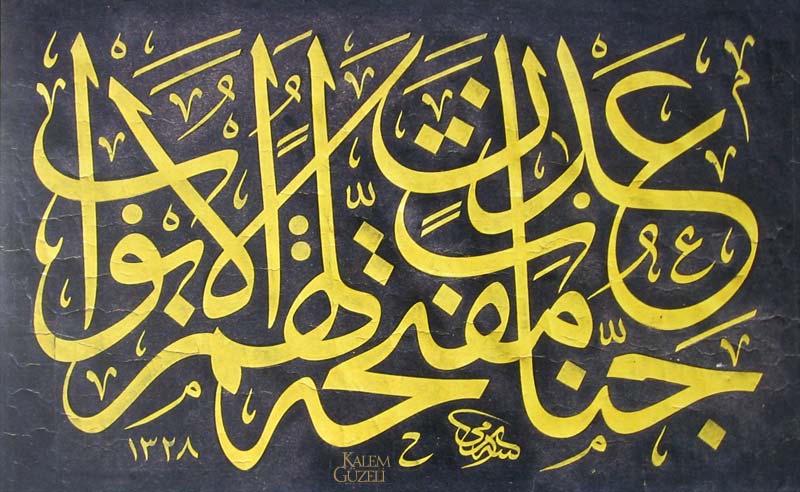 جَنَّاتِ عَدْنٍ مُفَتَّحَةً لَهُمُ الْأَبْوَابُ
١٣٢٨
KALEM
GÜZELİ